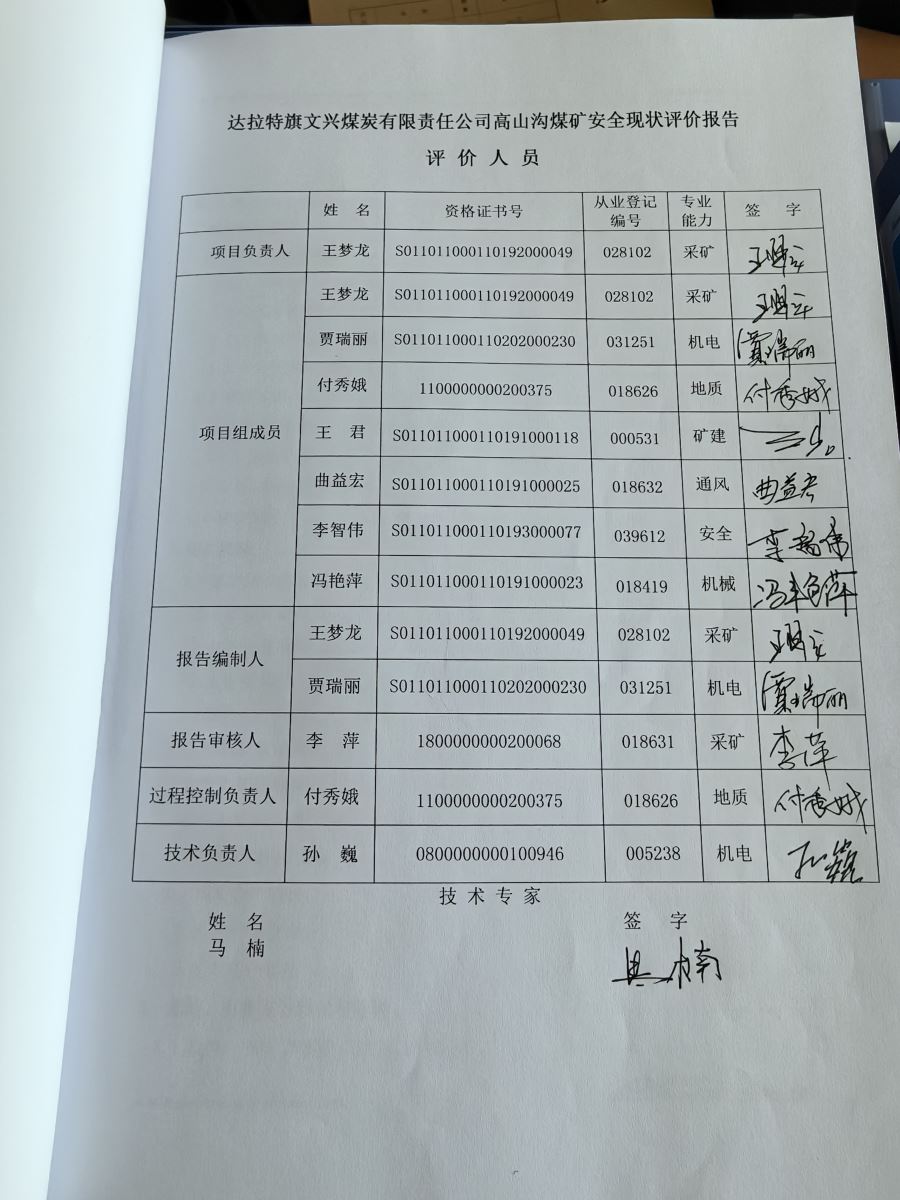 达拉特旗文兴煤炭有限责任公司高山沟煤矿安全现状评价报告
评 价 人 员
姓 名 资格证书号 从业登记编号 专业能力 签 字
项目负责人 王梦龙 S011011000110192000049 028102 采矿 王梦龙
项目组成员 王梦龙 S011011000110192000049 028102 采矿 王梦龙
贾瑞丽 S011011000110202000230 031251 机电 贾瑞丽
付秀娥 1100000000200375 018626 地质 付秀娥
王 君 S011011000110191000118 000531 矿建 王君
曲益宏 S011011000110191000025 018632 通风 曲益宏
李智伟 S011011000110193000077 039612 安全 李智伟
冯艳萍 S011011000110191000023 018419 机械 冯艳萍
报告编制人 王梦龙 S011011000110192000049 028102 采矿 王梦龙
贾瑞丽 S011011000110202000230 031251 机电 贾瑞丽
报告审核人 李 萍 1800000000200068 018631 采矿 李萍
过程控制负责人 付秀娥 1100000000200375 018626 地质 付秀娥
技术负责人 孙 巍 0800000000100946 005238 机电 孙巍
技 术 专 家
姓 名 签 字
马 楠 马楠